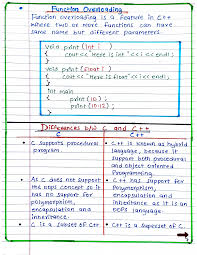 Function Overloading
Function overloading is a feature in C++
where two or more functions can have
same name but different parameters.
void print (int i)
{ cout << "Here is int" << i << endl; }
void print (float i)
{ cout << "Here is float" << i << endl; }
int main
{ print (10);
print (10.12); }
Differences b/w C and C++
C
C++
C supports procedural
program.
C++ is known as hybrid
language, because it
support both procedural
and object oriented
Programming.
As C does not support
the oops concept so it
has no support for
polymorphism,
encapsulation and
inheritance.
C++ has support for
Polymorphism,
encapsulation and
inheritance as it is an
OOPS language.
C is a subset of C++
C++ is a superset of C.